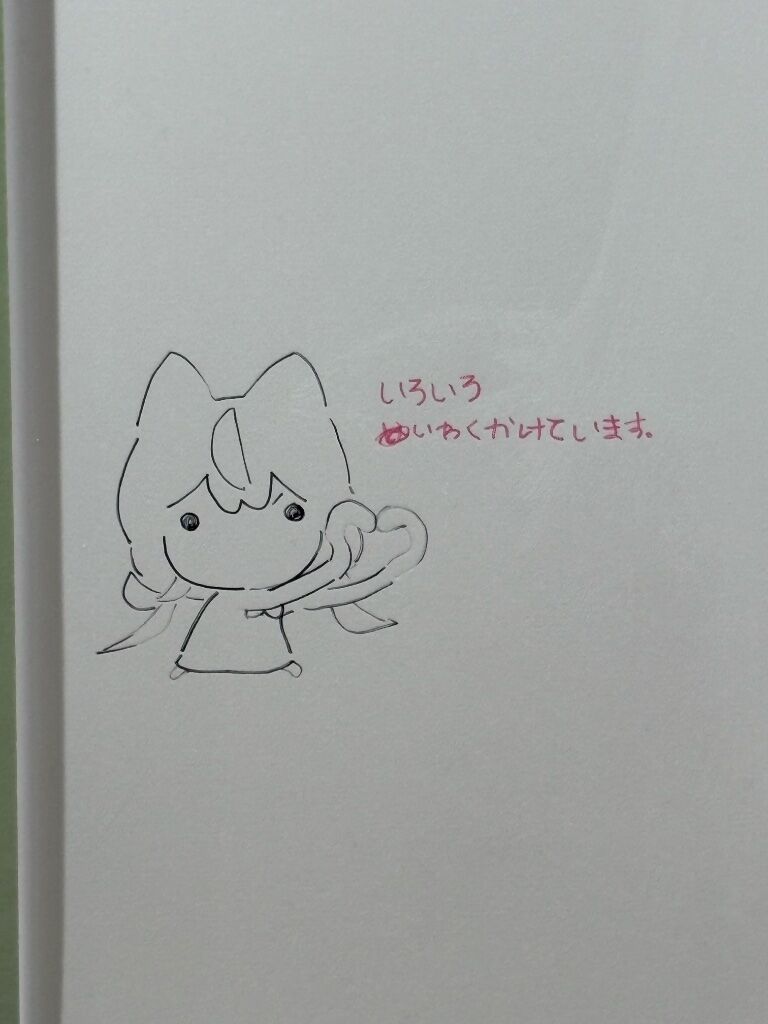 いろいろ
めいわくかけています。